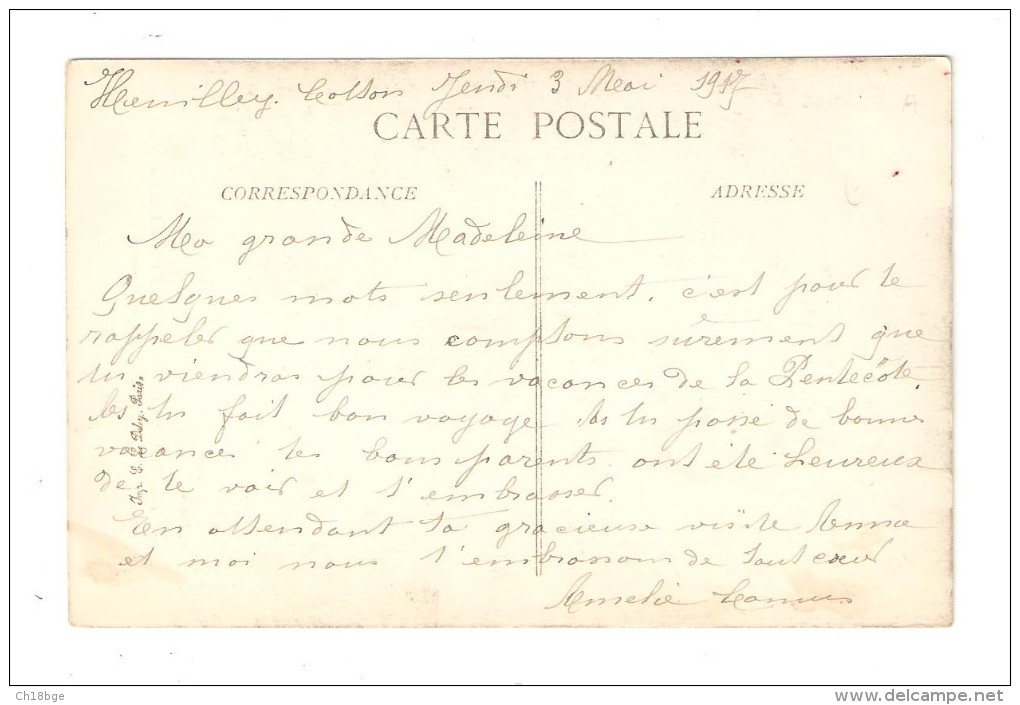 Heuilley-Cotton Jeudi 3 Mai 1917
CARTE POSTALE
CORRESPONDANCE
ADRESSE
Ma grande Madeleine
Quelques mots seulement. c'est pour te
rappeler que nous comptons sûrement que
tu viendras pour les vacances de la Pentecôte.
As tu fait bon voyage As tu passé de bonnes
vacances tes bons parents ont été heureux
de te voir et t'embrasser.
En attendant ta gracieuse visite Anna
et moi nous t'embrassons de tout cœur
Amelie Camus
Imp. E. Le Deley, Paris.
Ch18bge
www.delcampe.net